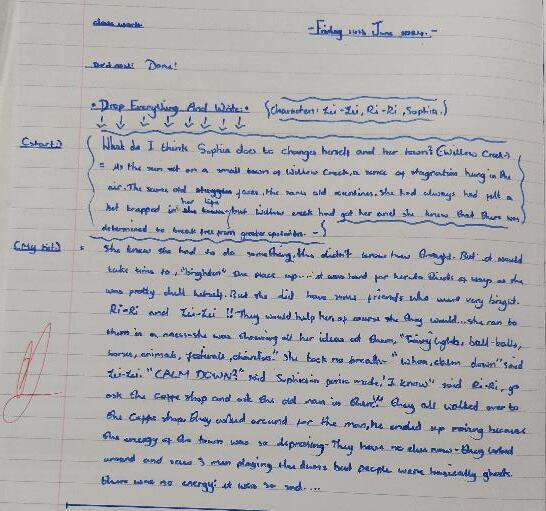 class work
- Friday 14th June 2024. -
Done!
• Drop Everything And Write • {Characters: Lei-Lei, Ri-Ri, Sophia.}
(start:) What do I think Sophia does to changes herself and her town? (Willow Creek)
= As the sun set on a small town of Willow Creek, a sence of stagnation hung in the
air. The same old faces, the same old routines. She had always had felt a
bit trapped in her life but Willow creek had got her and she knew that there was
determined to break free from
(My bit:) She knew she had to do something, She didn't know how though. But it would
take time to, "brighten" the place up... it was hard for her to think of ways as she
was pretty dull herself. But she did have some friends who were very bright.
Ri-Ri and Lei-Lei !! They would help her, of course she they would... she ran to
them in a mess - she was showing all her ideas at them, "Fairy lights, ball-balls,
horses, animals, festivals, charities." She took no breath. "Whoa, calm down" said
Lei-Lei. "CALM DOWN?" said Sophia in panic mode, "I know" said Ri-Ri, go
ask the Coffee shop and ask the old man in there!!" They all walked over to
the Coffe shop they asked around for the man, he ended up moving because
the energy of the town was so depressing - They have no clue now - they looked
around and saw 3 men playing the drums but people were basically ghosts.
there was no energy! it was so sad....